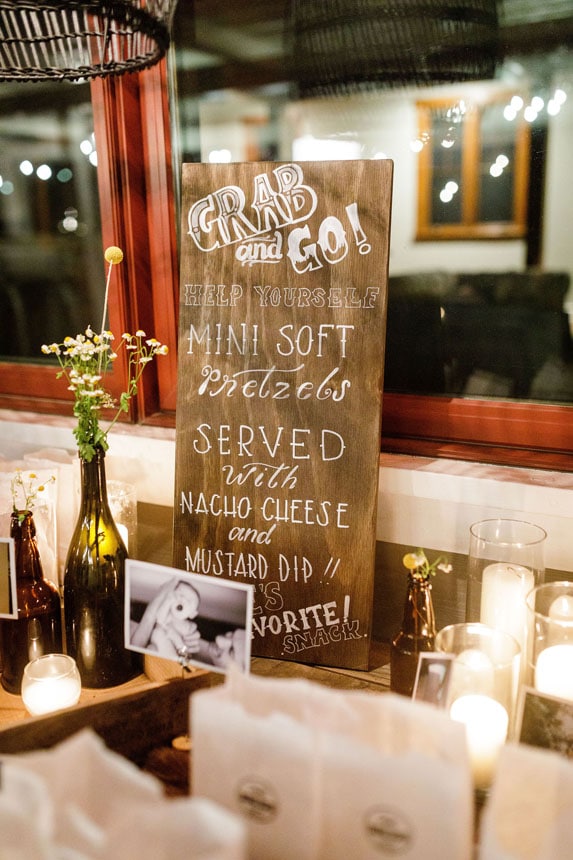 GRAB
and GO!
HELP YOURSELF
MINI SOFT
Pretzels
SERVED
with
NACHO CHEESE
and
MUSTARD DIP!!
SNACK